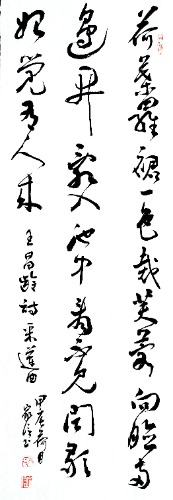 荷葉羅裙一色裁芙蓉向臉兩
邊開亂入池中看不見聞歌
始覺有人來
王昌齡詩采蓮曲
甲辰荷月